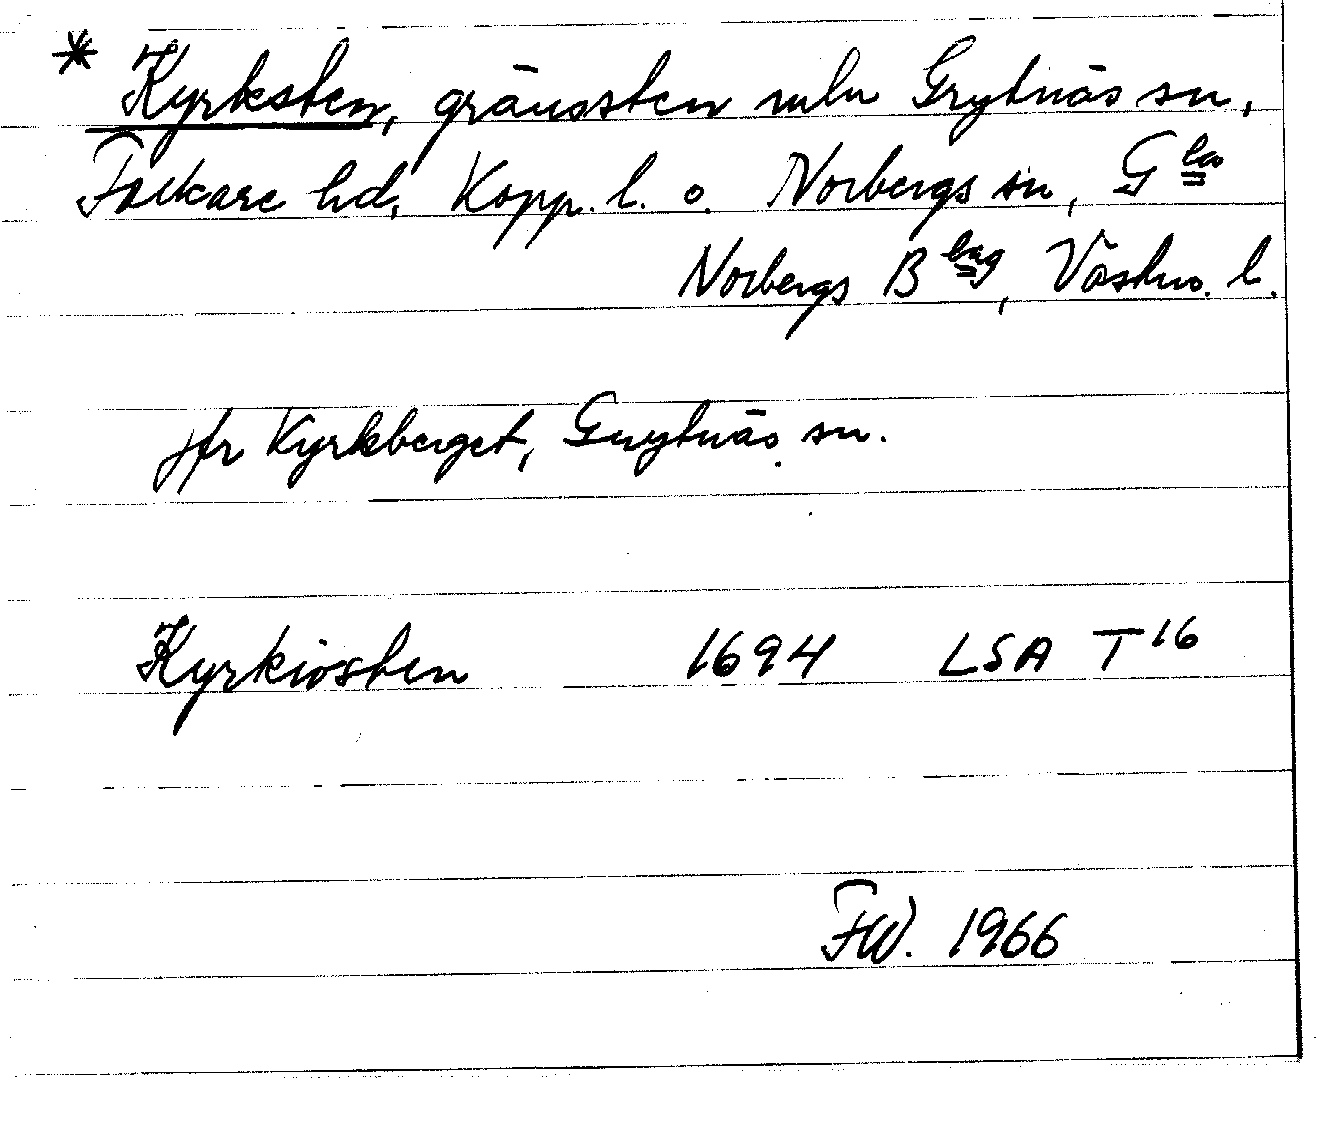 * Kyrksten, gränssten mln Grytnäs sn,
Folkare hd, Kopp. l. o. Norbergs sn, G:la
Norbergs B:lag, Västm. l.
jfr Kyrkberget, Grytnäs sn.
Kyrkiosten 1694 LSA T 16
FW. 1966